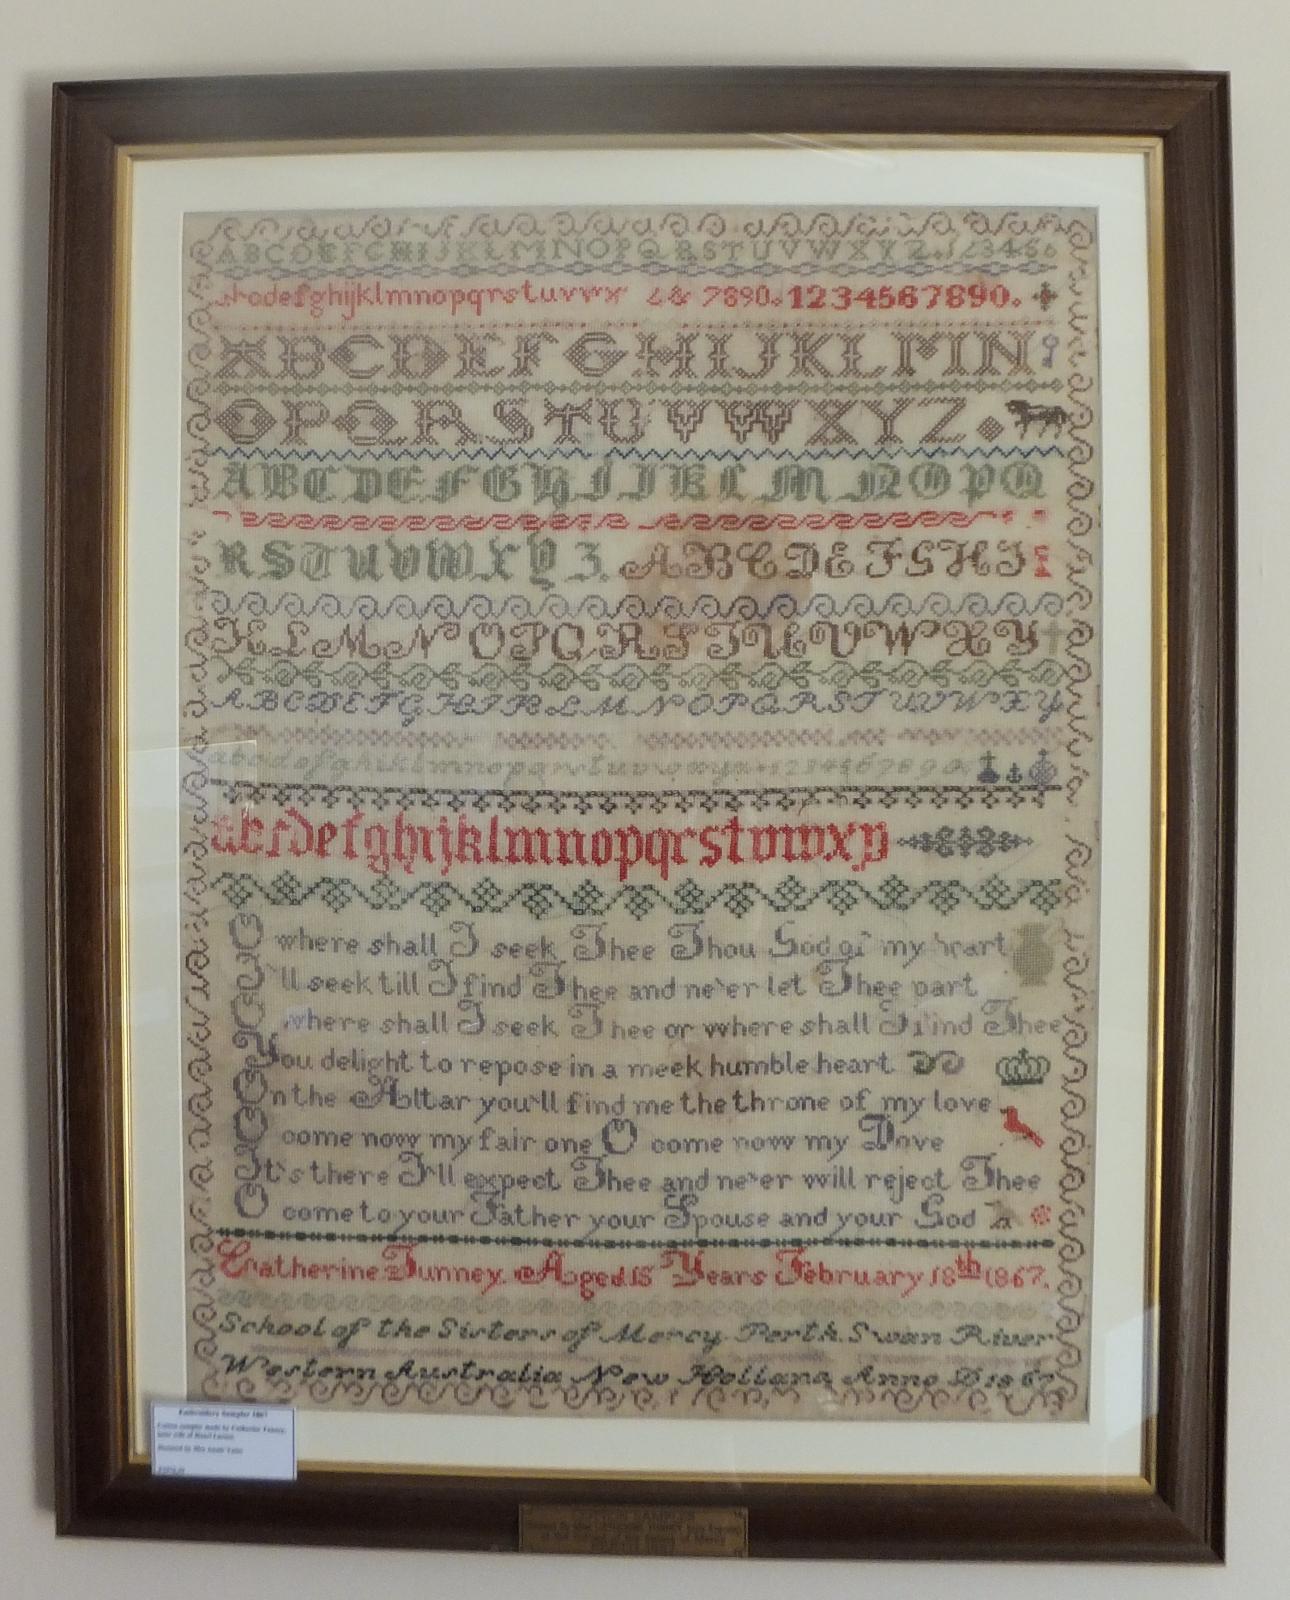 ABCDEFGHIJKLMNOPQRSTUVWXYZ.123456
abcdefghijklmnopqrstuvwx & 7890.1234567890.
ABCDEFGHIJKLMN
OPQRSTUVWXYZ
ABCDEFGHIJKLMNOPQ
RSTUVWXYZ.ABCDEFGHI
KLMNOPQRSTUVWXY
ABCDEFGHIKLMNOPQRSTUVWXY
abcdefghiklmnopqrstuvwxyz1234567890
abcdefghijklmnopqrstuvwxy
O where shall I seek Thee Thou God of my heart
I'll seek till I find Thee and ne'er let Thee part
O where shall I seek Thee or where shall I find Thee
You delight to repose in a meek humble heart
On the Altar you'll find me the throne of my love
O come now my fair one O come now my Dove
It's there I'll expect Thee and ne'er will reject Thee
O come to your Father your Spouse and your God
Catherine Tunney. Aged 15 Years February 18th 1867.
School of the Sisters of Mercy Perth. Swan River
Western Australia New Holland Anno D 1867
Embroidery Sampler 1867
Cotton sampler made by Catherine Tunney,
later wife of
Donated by Mrs